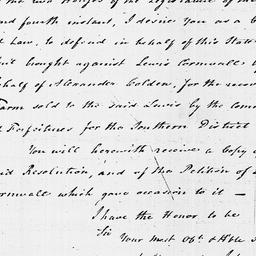 the two Houses of the Legislature of the
and fourth instant, I desire you as a
at Law, to defend in behalf of this State
suit brought against Lewis Cornwall
behalf of Alexander Colden, for the
Farm sold to the said Lewis by the
of Forfeitures for the Southern District
You will herewith receive a Copy
said Resolution, and of the Petition of
Cornwall which gave occasion to it —
I have the Honor to be
Sir
Your most Obt. & Hble